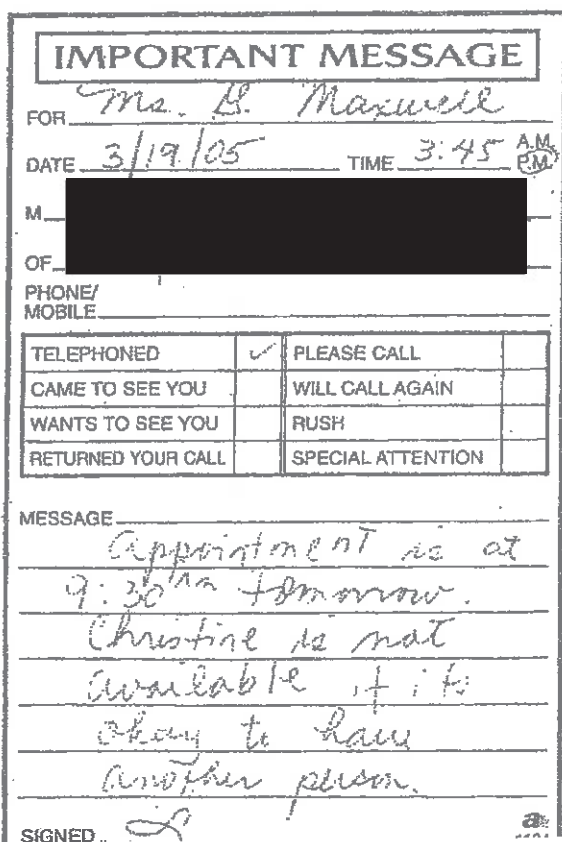 IMPORTANT MESSAGE
FOR Ms. G. Maxwell
DATE 3/19/05 TIME 3:45 A.M. P.M.
M
OF
PHONE/
MOBILE
TELEPHONED ✓ PLEASE CALL
CAME TO SEE YOU WILL CALL AGAIN
WANTS TO SEE YOU RUSH
RETURNED YOUR CALL SPECIAL ATTENTION
MESSAGE
Appointment is at
9:30 tomorrow.
Christine is not
available if its
okay to have
another person.
SIGNED